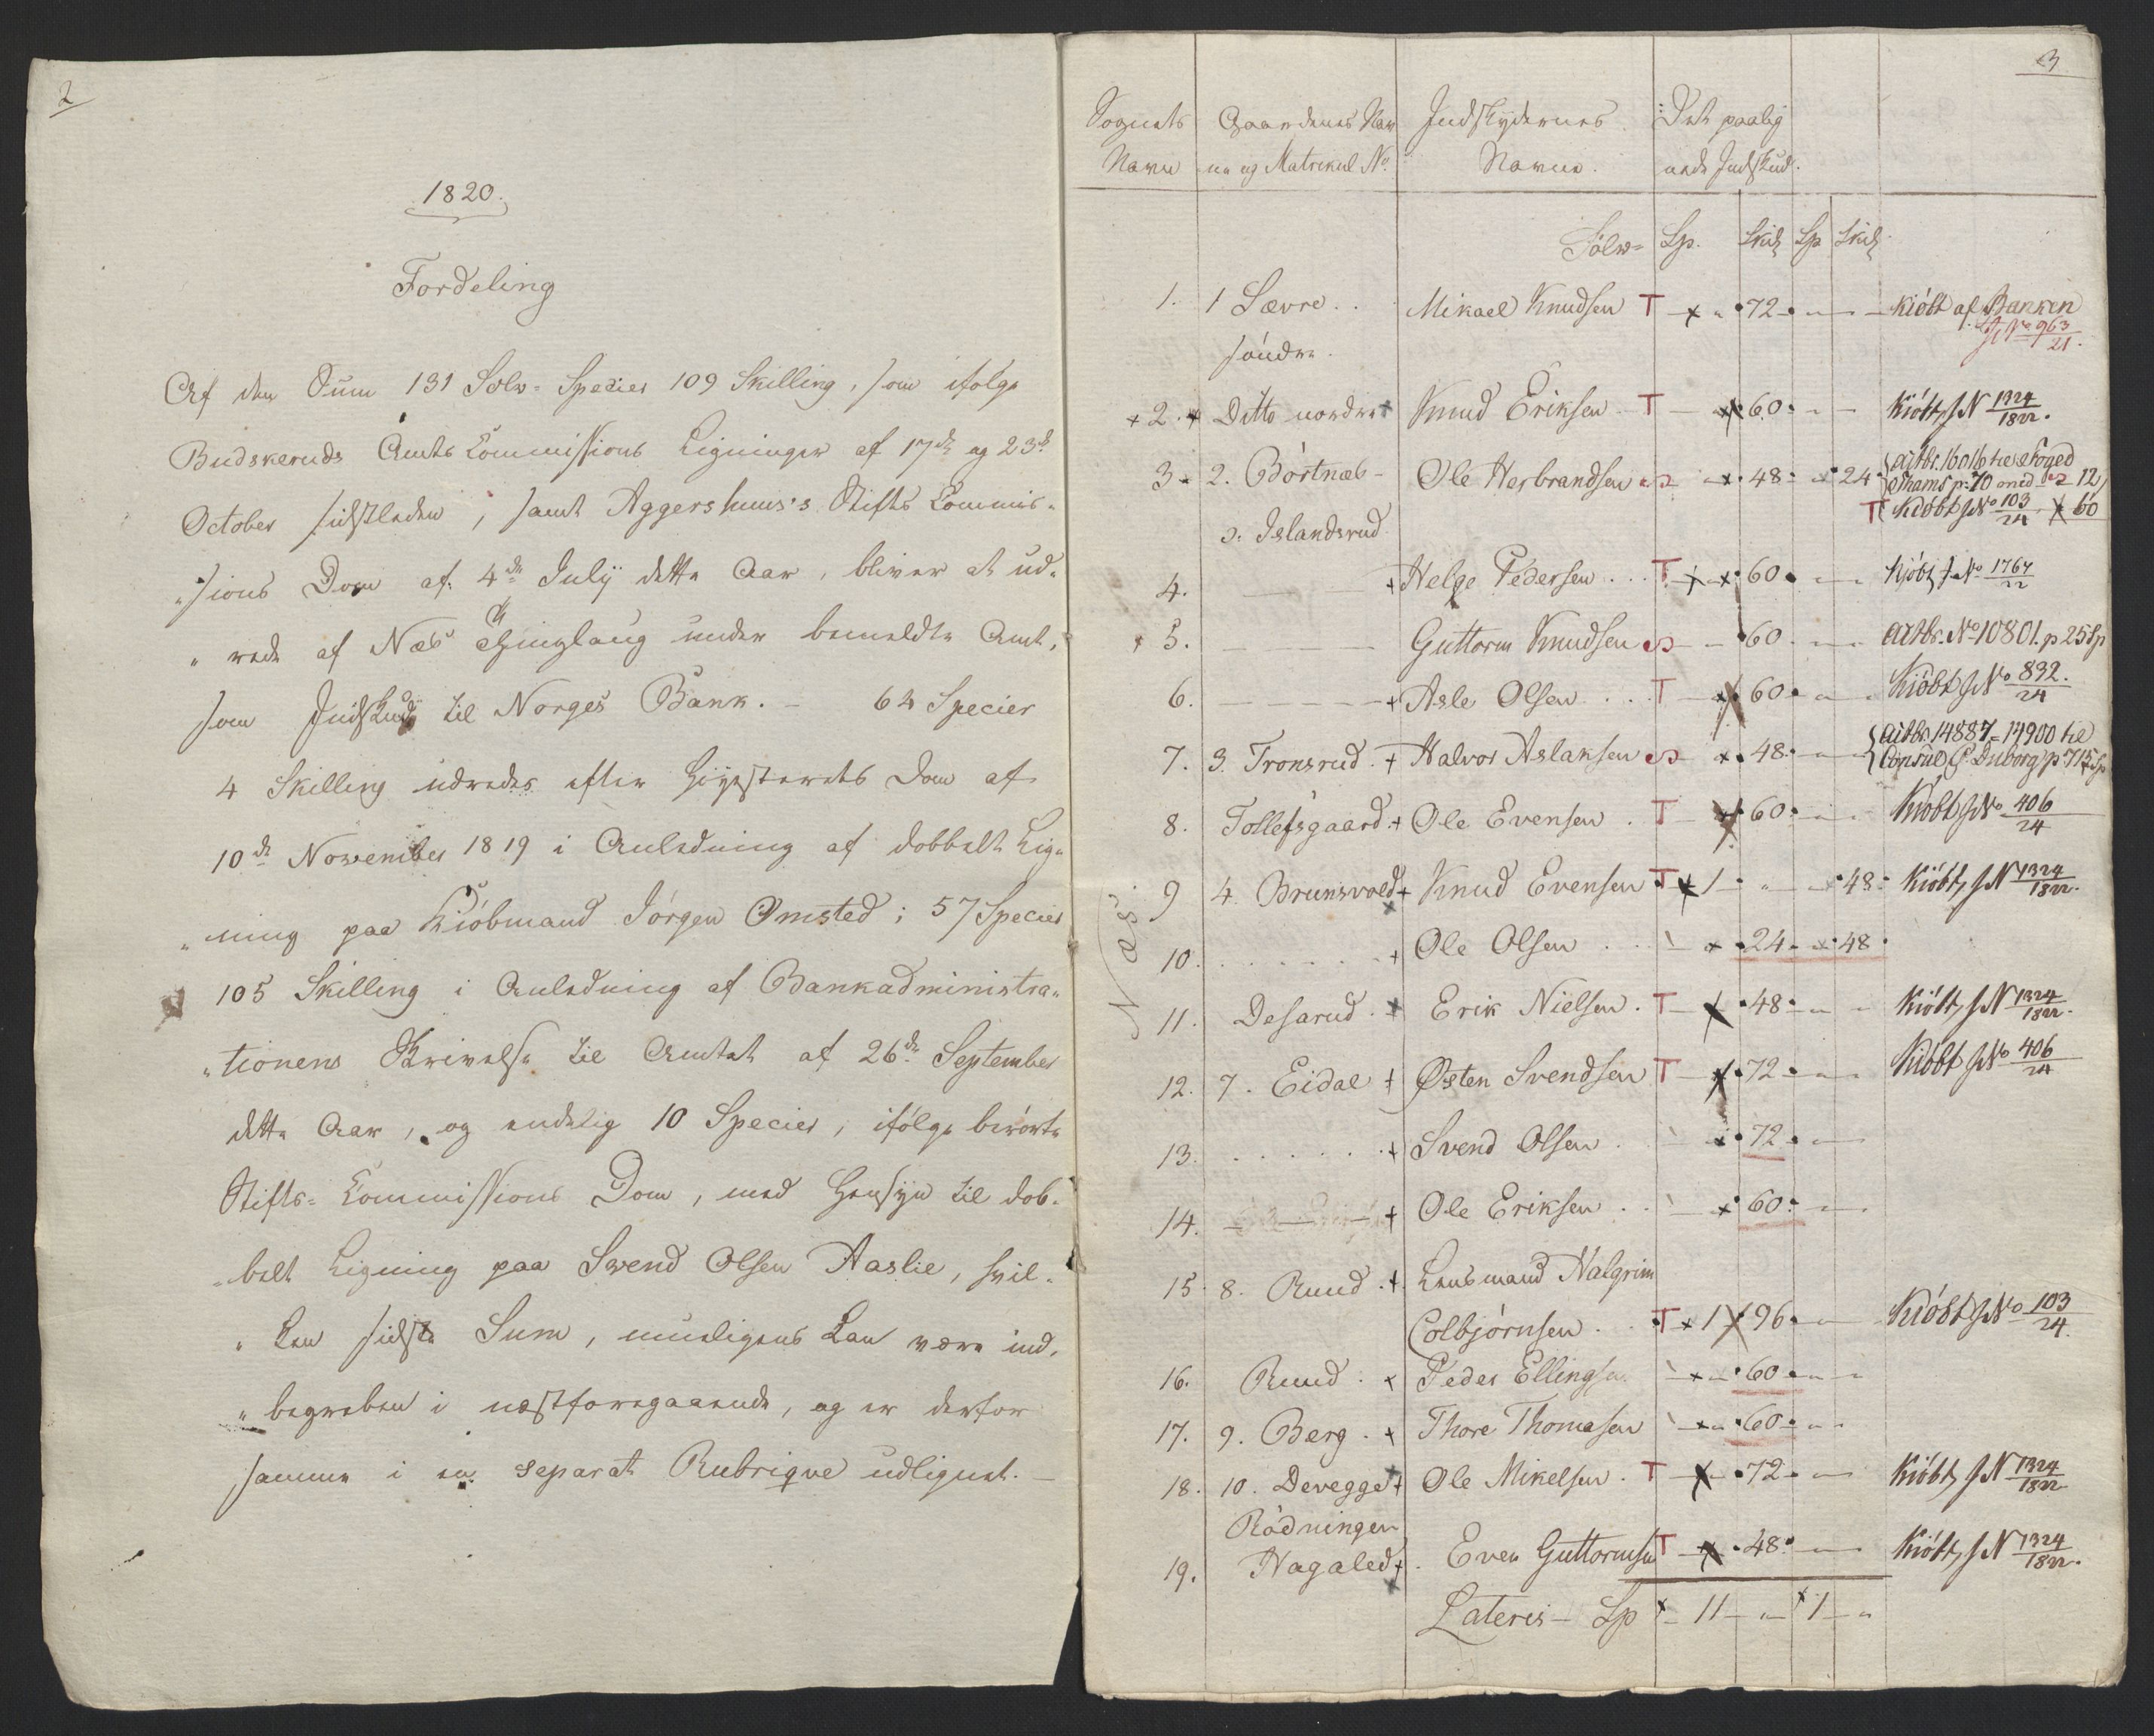 2
1820.
Fordeling
Af den Sum 131 Sølv-Species 109 Skilling, som ifølge
Budskeruds Amts Commissions Ligninger af 17de og 23de
October sidstleden, samt Aggershuus's Stifts Commis-
"sions Dom af 4de July dette Aar, bliver at ud-
"rede af Næs Thinglaug under bemeldte Amt,
som Indskud til Norges Bank. - 64 Species
4 Skilling udredes efter Høyesterets Dom af
10de November 1819 i Anledning af dobbelt Lig-
"ning paa Kiøbmand Jørgen Omsted; 57 Species
105 Skilling i Anledning af Bankadministra-
"tionens Skrivelse til Amtet af 26de September
dette Aar, og endelig 10 Species, ifølge berørte
Stifts-Commissions Dom, med Hensyn til dob-
"belt Ligning paa Svend Olsen Aaslie, hvil-
"ken sidste Sum, mueligens kan være ind-
"begreben i næstforegaaende, og er derfor
samme i en separat Rubrique udlignet. -
3
Sognets Navn
Gaardenes Nav
ne og Matrikul No.
Indskydernes
Navne.
Det paalig
nede Indskud.
Sølv- Sp. Skil Sp Skil
Næs
1. 1 Sævre Mikael Knudsen T 72 Kiöbt af Banken
søndre. No 963/21.
2. Ditto nordre Knud Eriksen T 60 Kiöbt, J N 1324/1822.
3 2. Börtnæs - Ole Herbrandsen 48 24 16016 til Foged
p: 70 med 12,
T Kiöbt J No 103/24 60
o. Islandsrud
4. Helge Pedersen T 60 Kjöbt J No 1767/22
5. Guttorm Knudsen 60 No 10801. p 25 Sp
6. Asle Olsen T 60 Kiöbt J No 832./24
7. 3. Tronsrud Halvor Aslaksen 48 14887-14900 til
Consul Duborg p 715 Sp
8. Tollefsgaard Ole Evensen T 60 Kiöbt J No 406/24
9 4. Brunsvold Knud Evensen T 1 " 48 Kiöbt, J N 1324/1822.
10. Ole Olsen 24 48
11. Desarud Erik Nielsen T 48 Kiöbt, J N 1324/1822.
12. 7. Eidal Østen Svendsen T 72 Kiöbt J No 406/24
13. Svend Olsen 72
14. Ole Eriksen 60
15 8. Ruud Lensmand Halgrim
Colbjørnsen T 1 96 Kiöbt J No 103/24.
16. Ruud Peder Ellingsen 60
17. 9. Berg Thore Thomasen 60
18. 10. Devegge Ole Mikelsen T 72 Kiöbt, J N 1324/1822
Rødningen
19. Hagaled Even Guttormsen T 48 Kiöbt, J N 1324/1822.
Lateris - Sp 11 " 1 "